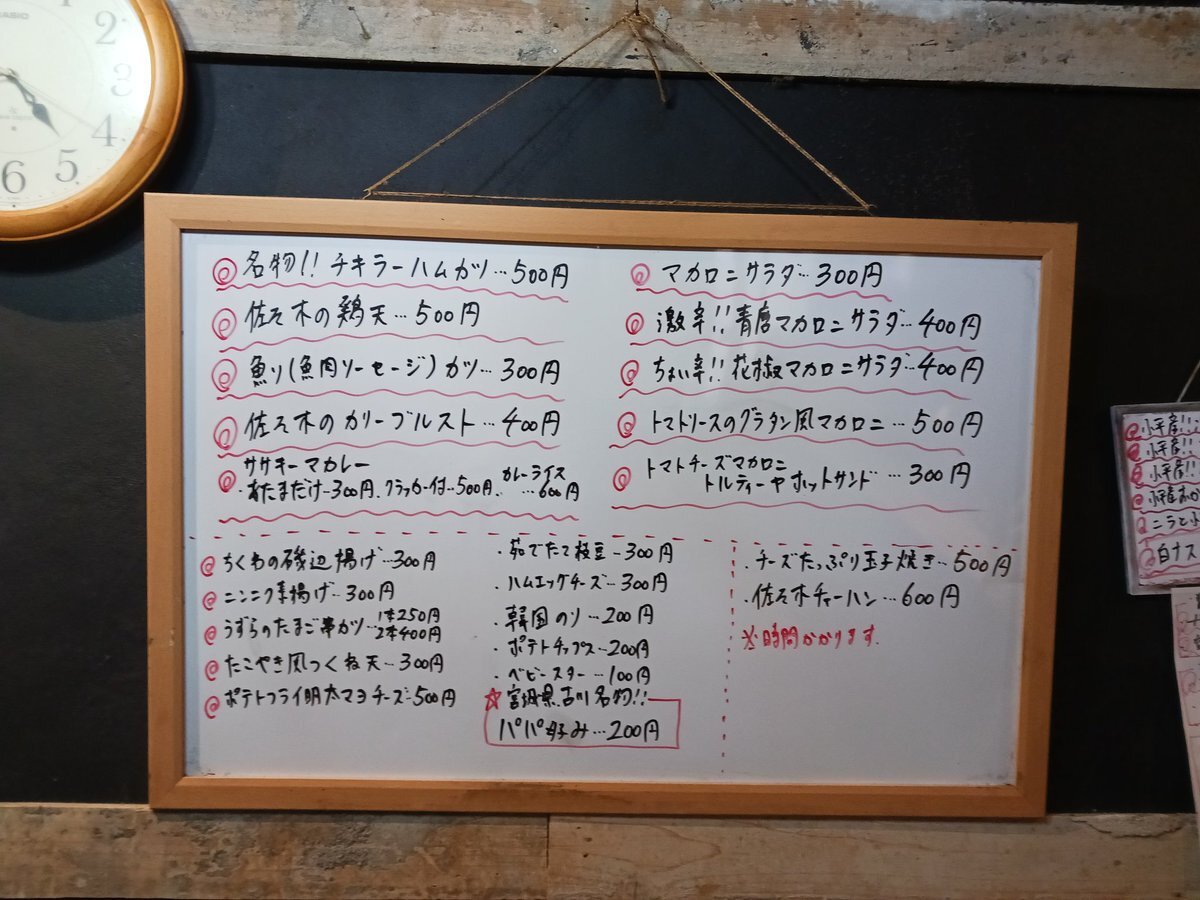 CASIO
2
3
4
5
6
名物!! チキラーハムカツ…500円
佐々木の鶏天…500円
魚リ(魚肉ソーセージ)カツ…300円
佐々木のカリーブルスト…400円
ササキーマカレー
・あたまだけ…300円、クラッカー付…500円、カレーライス…600円
マカロニサラダ…300円
激辛!!青唐マカロニサラダ…400円
ちょい辛!!花椒マカロニサラダ…400円
トマトソースのグラタン風マカロニ…500円
トマトチーズマカロニ
トルティーヤホットサンド…300円
ちくわの磯辺揚げ…300円
ニンニク素揚げ…300円
うずらのたまご串カツ…1本250円
2本400円
たこやき風つくね天…300円
ポテトフライ明太マヨチーズ…500円
・茹でたて枝豆…300円
・ハムエッグチーズ…300円
・韓国のり…200円
・ポテトチップス…200円
・ベビースター…100円
☆宮城県古川名物!!
パパ好み…200円
・チーズたっぷり玉子焼き…500円
・佐々木チャーハン…600円
※時間かかります。
小平産!!
小平産!!
小平産!!
小平産
ニラ
白ナス